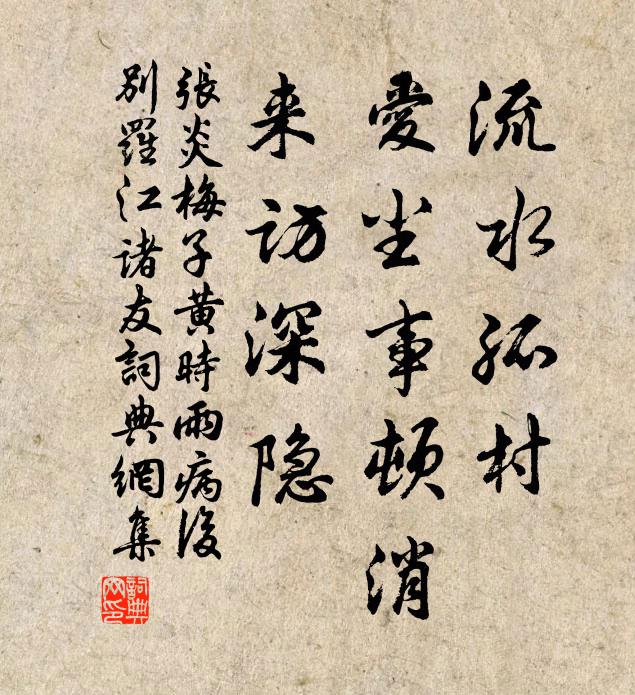 流水孤村
愛尘事頓消
来访深隐
張炎梅子黄時雨病後
别羅江诸友詞典網集
詞典网印